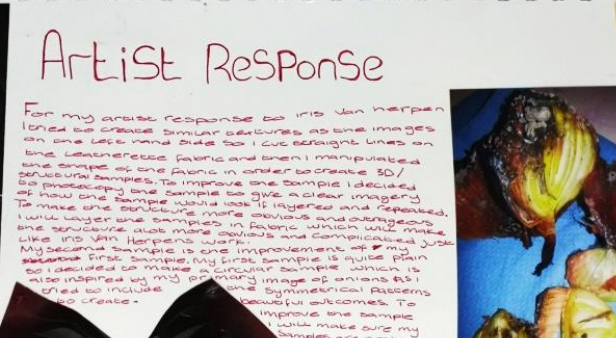 Artist Response
For my artist response to iris Van herpen
I tried to create similar textures as the images
on the left hand side so I cut straight lines on
the leatherette fabric and then I manipulated
the shape of the fabric in order to create 3D/
structural samples. To improve the sample I decided
to photocopy the sample to give a clear imagery
of how the sample would look if layered and repeated.
To make the structure more obvious and outrageous
I will layer the samples in fabric which will make
the structure alot more obvious and complicated just
like iris Van Herpens work.
My second sample is the improvement of my
first sample. My first sample is quite plain
so I decided to make a circular sample which is
also inspired by my primary image of onions as I
tried to include the symmetrical patterns
to create beautiful outcomes. To
improve the sample
I will make sure my
samples are